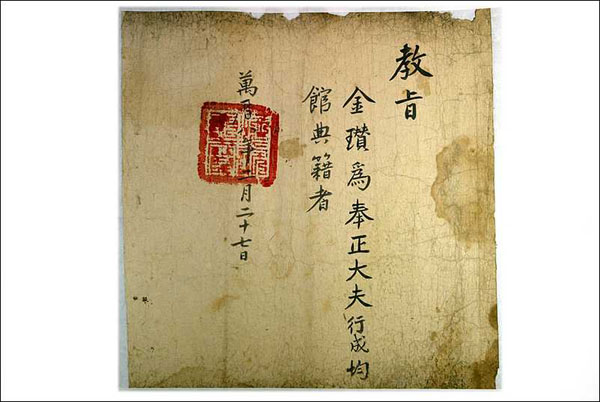 教旨
金瓚爲奉正大夫行成均
館典籍者
萬曆 年十二月二十七日